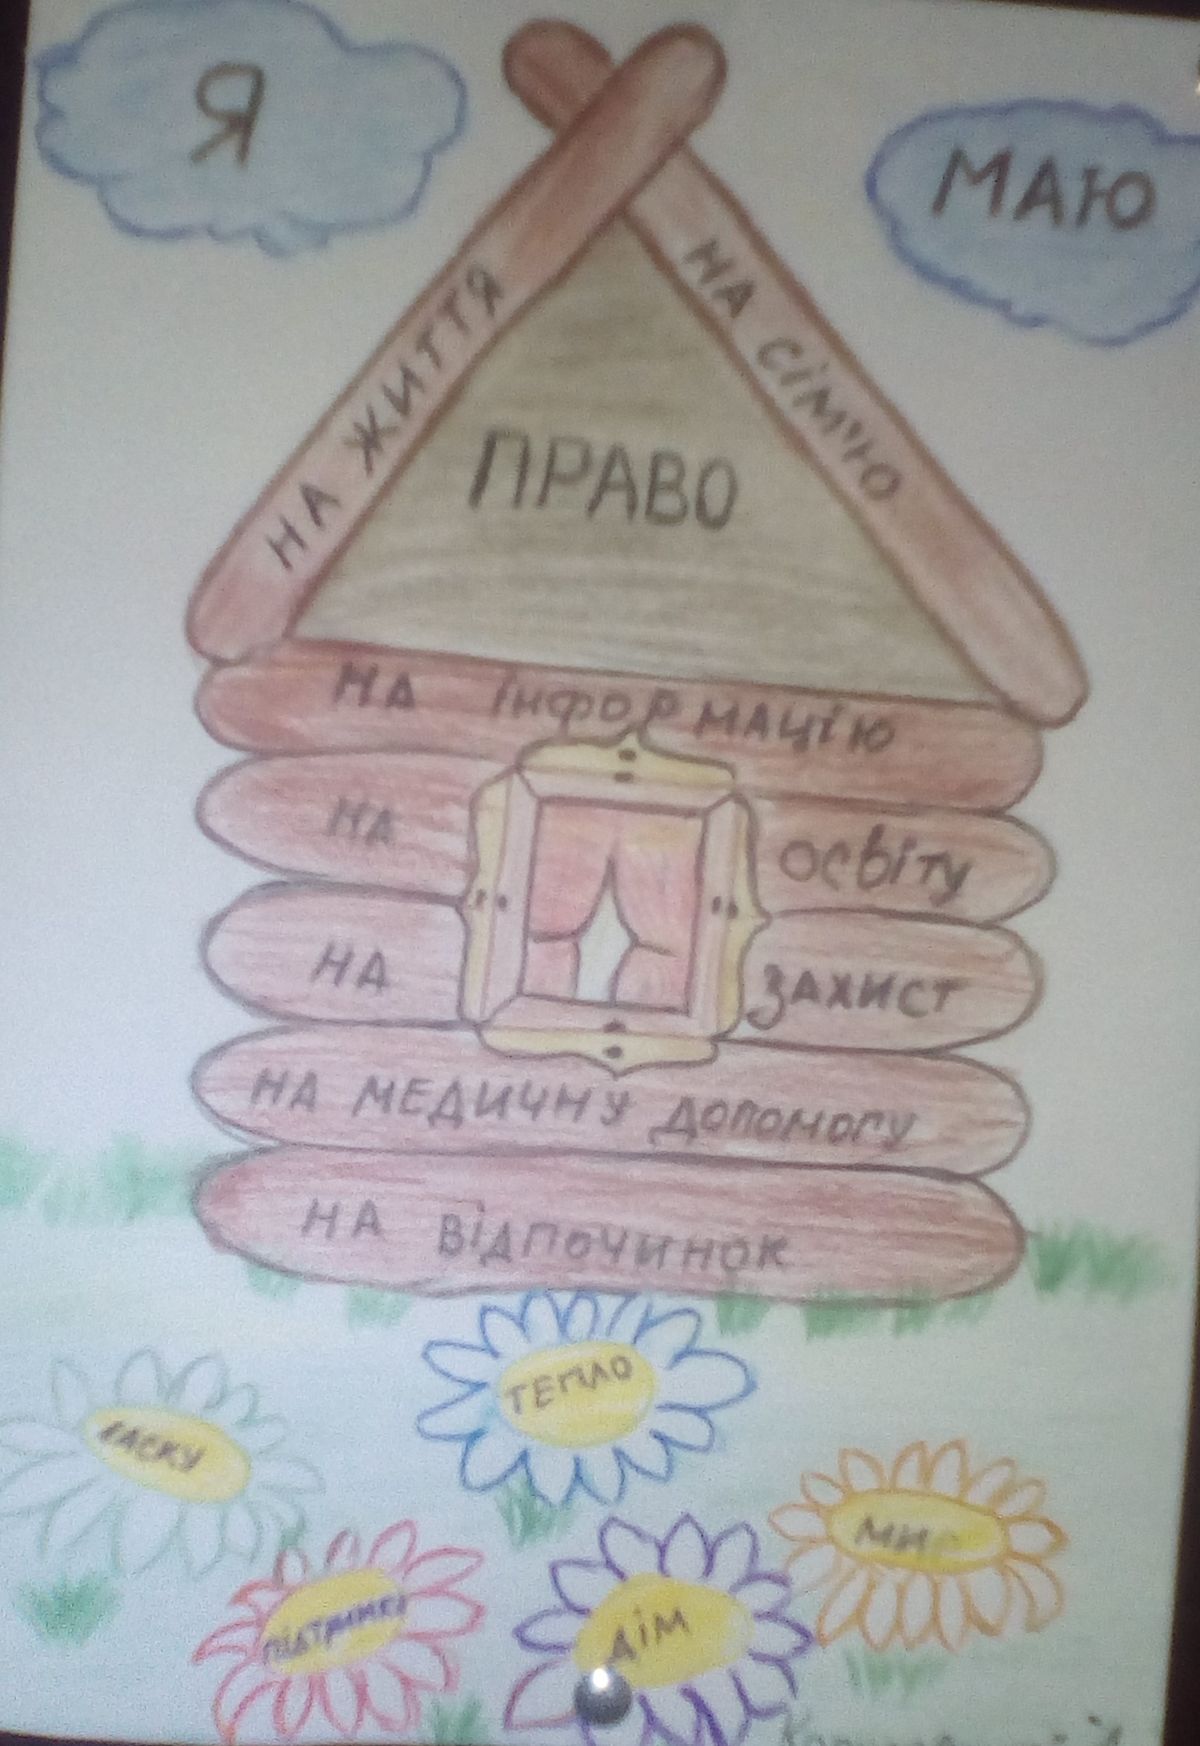 Я
МАЮ
НА ЖИТТЯ
НА СІМ'Ю
ПРАВО
НА ІНФОРМАЦІЮ
НА ОСВІТУ
НА ЗАХИСТ
НА МЕДИЧНУ ДОПОМОГУ
НА ВІДПОЧИНОК
ТЕПЛО
ЛАСКУ
МИР
ПІДТРИМКУ
ДІМ